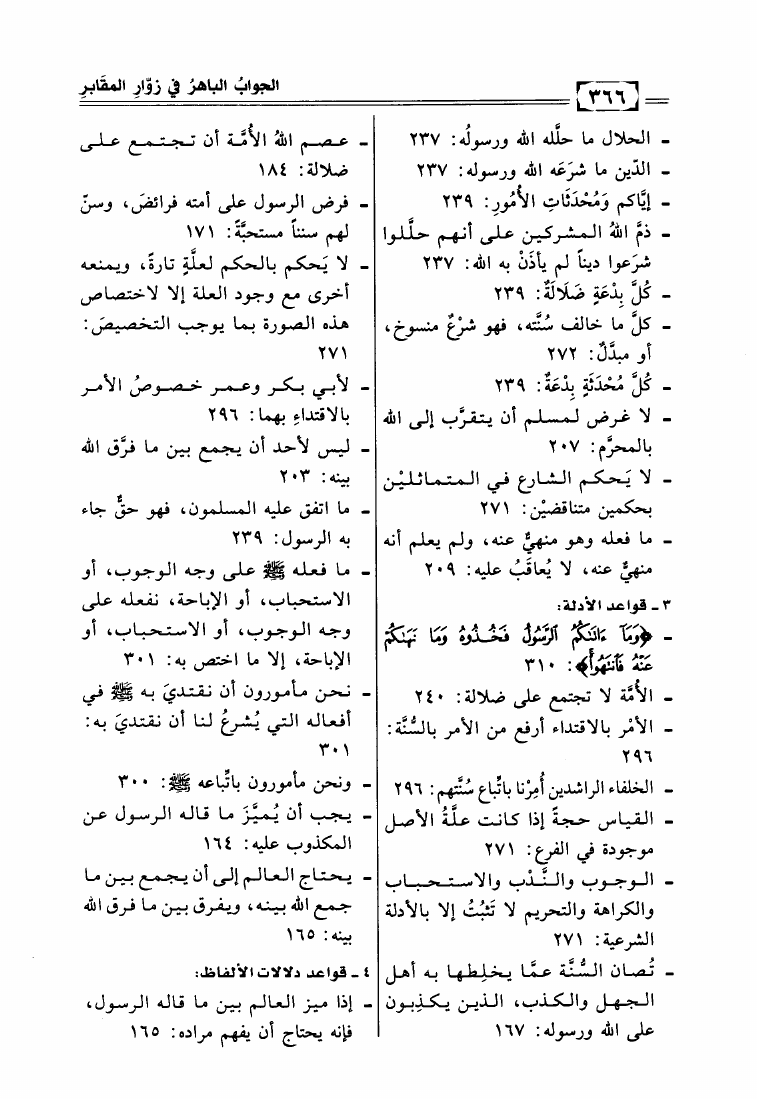 ٣٦٦
الجوابُ الباهرُ في زوّارِ المقَابرِ
- الحلال ما حلَّله الله ورسولُه: ٢٣٧
- الدّين ما شرَعَه الله ورسوله: ٢٣٧
- إيَّاكم وَمُحْدَثَاتِ الأُمُورِ: ٢٣٩
- ذمَّ اللهُ المشركين على أنهم حلَّلوا
شرَعوا ديناً لم يأذَنْ به الله: ٢٣٧
- كُلَّ بِدْعَةٍ ضَلَالَةٌ: ٢٣٩
- كلَّ ما خالف سُنَّته، فهو شرْعٌ منسوخ،
أو مبدَّلٌ: ٢٧٢
- كُلَّ مُحْدَثَةٍ بِدْعَةٌ: ٢٣٩
- لا غرض لمسلم أن يتقرَّب إلى الله
بالمحرَّم: ٢٠٧
- لا يَحكم الشارع في المتماثليْن
بحكمين متناقضيْن: ٢٧١
- ما فعله وهو منهيٌّ عنه، ولم يعلم أنه
منهيٌّ عنه، لا يُعاقَبُ عليه: ٢٠٩
٣ - قواعد الأدلة:
- ﴿وَمَآ ءَاتَىٰكُمُ ٱلرَّسُولُ فَخُذُوهُ وَمَا نَهَىٰكُمْ
عَنْهُ فَٱنتَهُوا۟﴾: ٣١٠
- الأُمَّة لا تجتمع على ضلالة: ٢٤٠
- الأمْر بالاقتداء أرفع من الأمر بالسُّنَّة:
٢٩٦
- الخلفاء الراشدين أُمِرْنا باتِّباع سُنَّتهم: ٢٩٦
- القياس حجةٌ إذا كانت علَّةُ الأصل
موجودة في الفرع: ٢٧١
- الوجوب والنَّدْب والاستحباب
والكراهة والتحريم لا تَثبُتُ إلا بالأدلة
الشرعية: ٢٧١
- تُصان السُّنَّة عمَّا يخلِطها به أهل
الجهل والكذب، الذين يكذِبون
على الله ورسوله: ١٦٧
- عصم اللهُ الأمَّة أن تجتمع على
ضلالة: ١٨٤
- فرض الرسول على أمته فرائضَ، وسنّ
لهم سنناً مستحبَّةً: ١٧١
- لا يَحكم بالحكم لعلَّةٍ تارةً، ويمنعه
أخرى مع وجود العلة إلا لاختصاص
هذه الصورة بما يوجب التخصيصَ:
٢٧١
- لأبي بكر وعمر خصوصُ الأمر
بالاقتداءِ بهما: ٢٩٦
- ليس لأحد أن يجمع بين ما فرَّق الله
بينه: ٢٠٣
- ما اتفق عليه المسلمون، فهو حقٌّ جاء
به الرسول: ٢٣٩
- ما فعله ﷺ على وجه الوجوب، أو
الاستحباب، أو الإباحة، نفعله على
وجه الوجوب، أو الاستحباب، أو
الإباحة، إلا ما اختص به: ٣٠١
- نحن مأمورون أن نقتديَ به ﷺ في
أفعاله التي يُشرعُ لنا أن نقتديَ به:
٣٠١
- ونحن مأمورون باتِّباعه ﷺ: ٣٠٠
- يجب أن يُميَّزَ ما قاله الرسول عن
المكذوب عليه: ١٦٤
- يحتاج العالم إلى أن يجمع بين ما
جمع الله بينه، ويفرق بين ما فرق الله
بينه: ١٦٥
٤ - قواعد دلالات الألفاظ:
- إذا ميز العالم بين ما قاله الرسول،
فإنه يحتاج أن يفهم مراده: ١٦٥